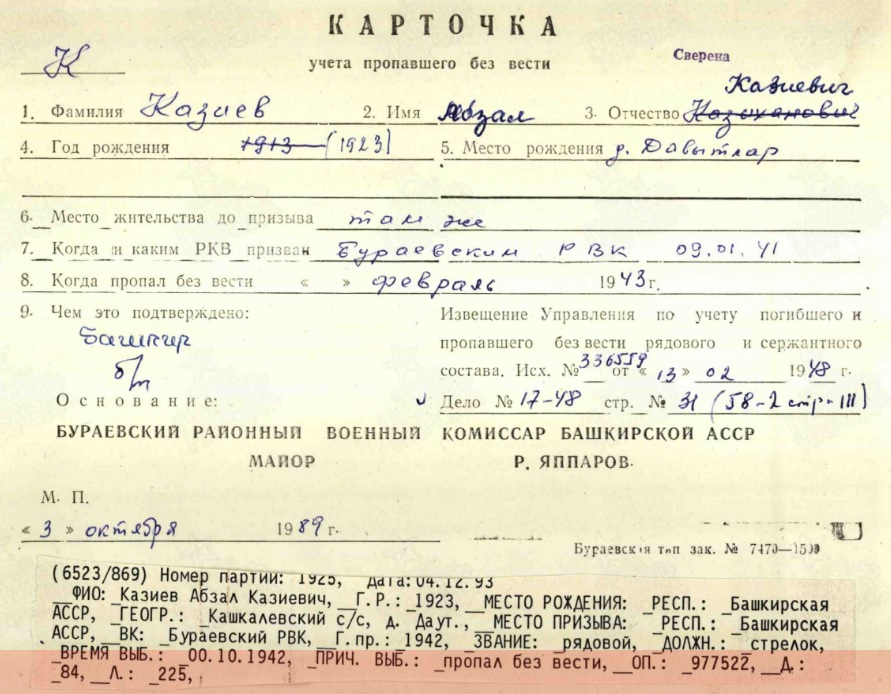 КАРТОЧКА
учета пропавшего без вести
Сверена
К
Казиевич
1. Фамилия Казиев 2. Имя Абзал 3. Отчество Козыханович
4. Год рождения 1913 (1923) 5. Место рождения д. Давытлар
6. Место жительства до призыва там же
7. Когда и каким РКВ призван Бураевским РВК 09.01.41
8. Когда пропал без вести « » февраль 1943 г.
9. Чем это подтверждено: Извещение Управления по учету погибшего и
Башкир пропавшего без вести рядового и сержантного
б/п состава. Исх. № 336559 от « 13 » 02 1948 г.
Основание: Дело № 17-48 стр. № 31 (58-2 стр. 111)
БУРАЕВСКИЙ РАЙОННЫЙ ВОЕННЫЙ КОМИССАР БАШКИРСКОЙ АССР
МАЙОР Р. ЯППАРОВ.
М. П.
« 3 » октября 1989 г.
Бураевская тип зак. № 7470—1500
(6523/869) Номер партии: 1925, Дата:04.12.93
__ФИО: _Казиев Абзал Казиевич, __Г.Р.: _1923, __МЕСТО РОЖДЕНИЯ: _РЕСП.: _Башкирская
АССР, _ГЕОГР.: _Кашкалевский с/с, д. Даут., __МЕСТО ПРИЗЫВА: _РЕСП.: _Башкирская
АССР, __ВК: _Бураевский РВК, __Г.пр.: _1942, _ЗВАНИЕ: _рядовой, _ДОЛЖН.: _стрелок,
_ВРЕМЯ ВЫБ.: _00.10.1942, _ПРИЧ. ВЫБ.: _пропал без вести, __ОП.: _977522, __Д.:
_84, __Л.: _225,